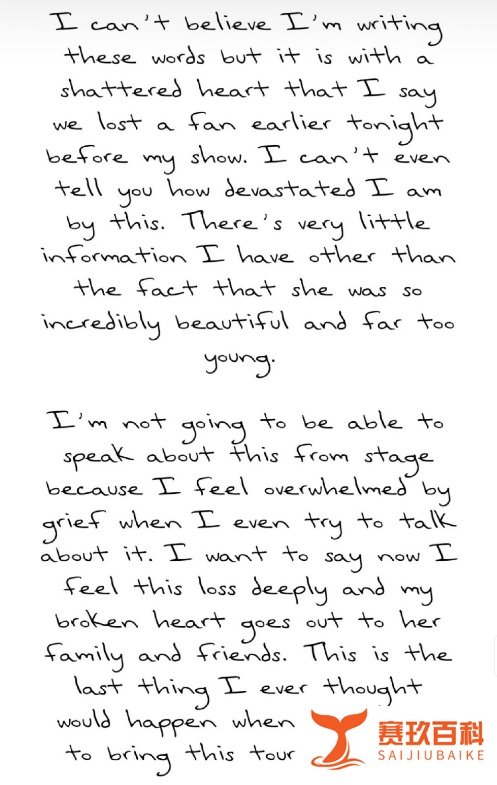 I can't believe I'm writing
these words but it is with a
shattered heart that I say
we lost a fan earlier tonight
before my show. I can't even
tell you how devastated I am
by this. There's very little
information I have other than
the fact that she was so
incredibly beautiful and far too
young.
I'm not going to be able to
speak about this from stage
because I feel overwhelmed by
grief when I even try to talk
about it. I want to say now I
feel this loss deeply and my
broken heart goes out to her
family and friends. This is the
last thing I ever thought
would happen when
to bring this tour
赛玖百科
SAIJIUBAIKE